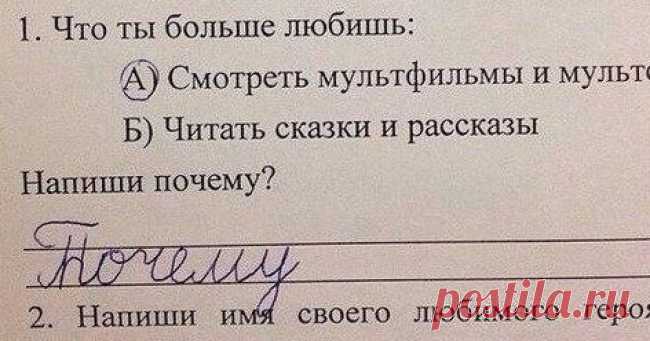 1. Что ты больше любишь:
А) Смотреть мультфильмы и
Б) Читать сказки и рассказы
Напиши почему?
Почему
2. Напиши имя своего любимого
postila.ru